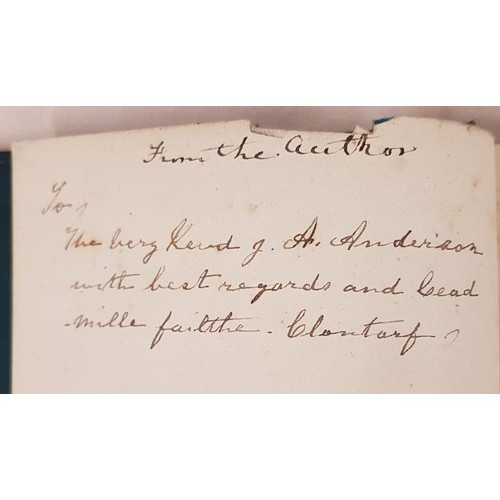 From the Author
To,
The very Revd J. A. Anderson
with best regards and Cead
mille failthe. Clontarf